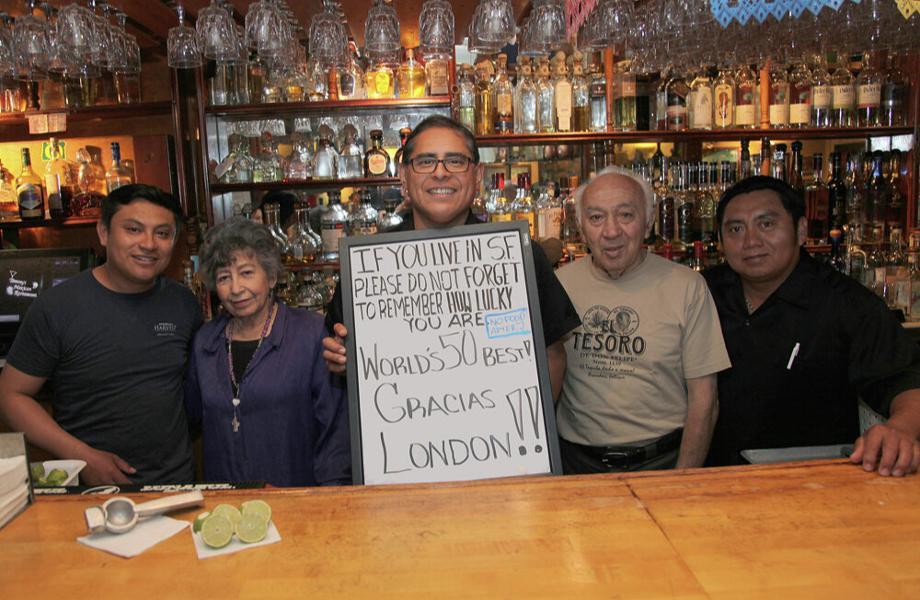 IF YOU LIVE IN S.F.
PLEASE DO NOT FORGET
TO REMEMBER HOW LUCKY
YOU ARE
NO FOOD
AFTER 9
WORLD'S 50 BEST!
GRACIAS
LONDON!!
EL
TESORO
DE DON FELIPE
Tommy's
Mexican
Restaurant